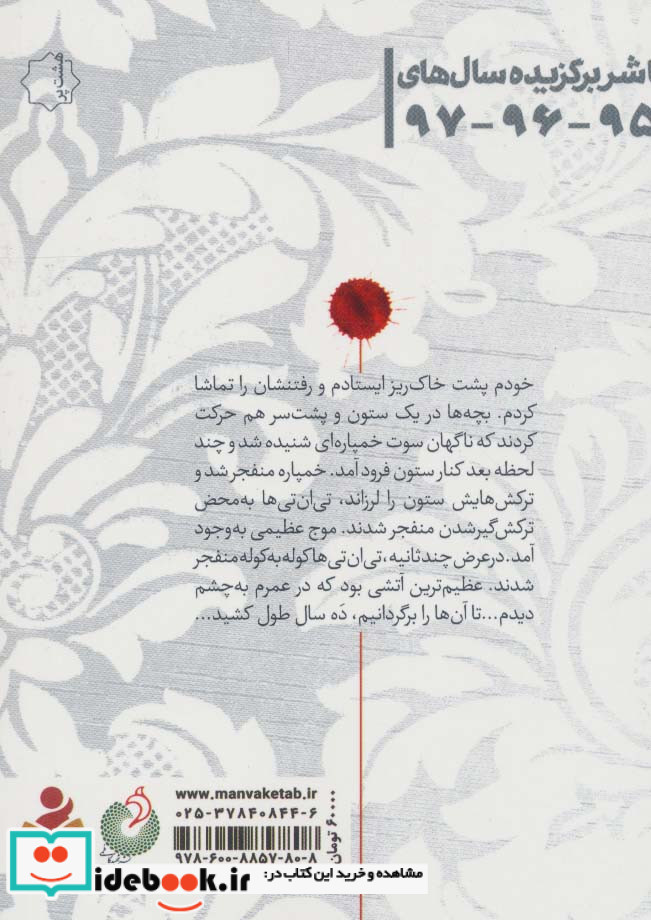 اشر برگزیده سال‌های
۹۵-۹۶-۹۷
هشت پر
خودم پشت خاک‌ریز ایستادم و رفتنشان را تماشا
کردم. بچه‌ها در یک ستون و پشت‌سر هم حرکت
کردند که ناگهان سوت خمپاره‌ای شنیده شد و چند
لحظه بعد کنار ستون فرود آمد. خمپاره منفجر شد و
ترکش‌هایش ستون را لرزاند، تی‌ان‌تی‌ها به‌محض
ترکش‌گیرشدن منفجر شدند. موج عظیمی به‌وجود
آمد. در عرض چند ثانیه، تی‌ان‌تی‌ها کوله‌به‌کوله منفجر
شدند. عظیم‌ترین آتشی بود که در عمرم به‌چشم
دیدم...تا آن‌ها را برگردانیم، دَه سال طول کشید...
www.manvaketab.ir
۰۲۵-۳۷۸۴۰۸۴۴-۶
۹۷۸-۶۰۰-۸۸۵۷-۸۰-۸
۶۰۰۰۰ تومان
مشاهده و خرید این کتاب در:
idebook.ir